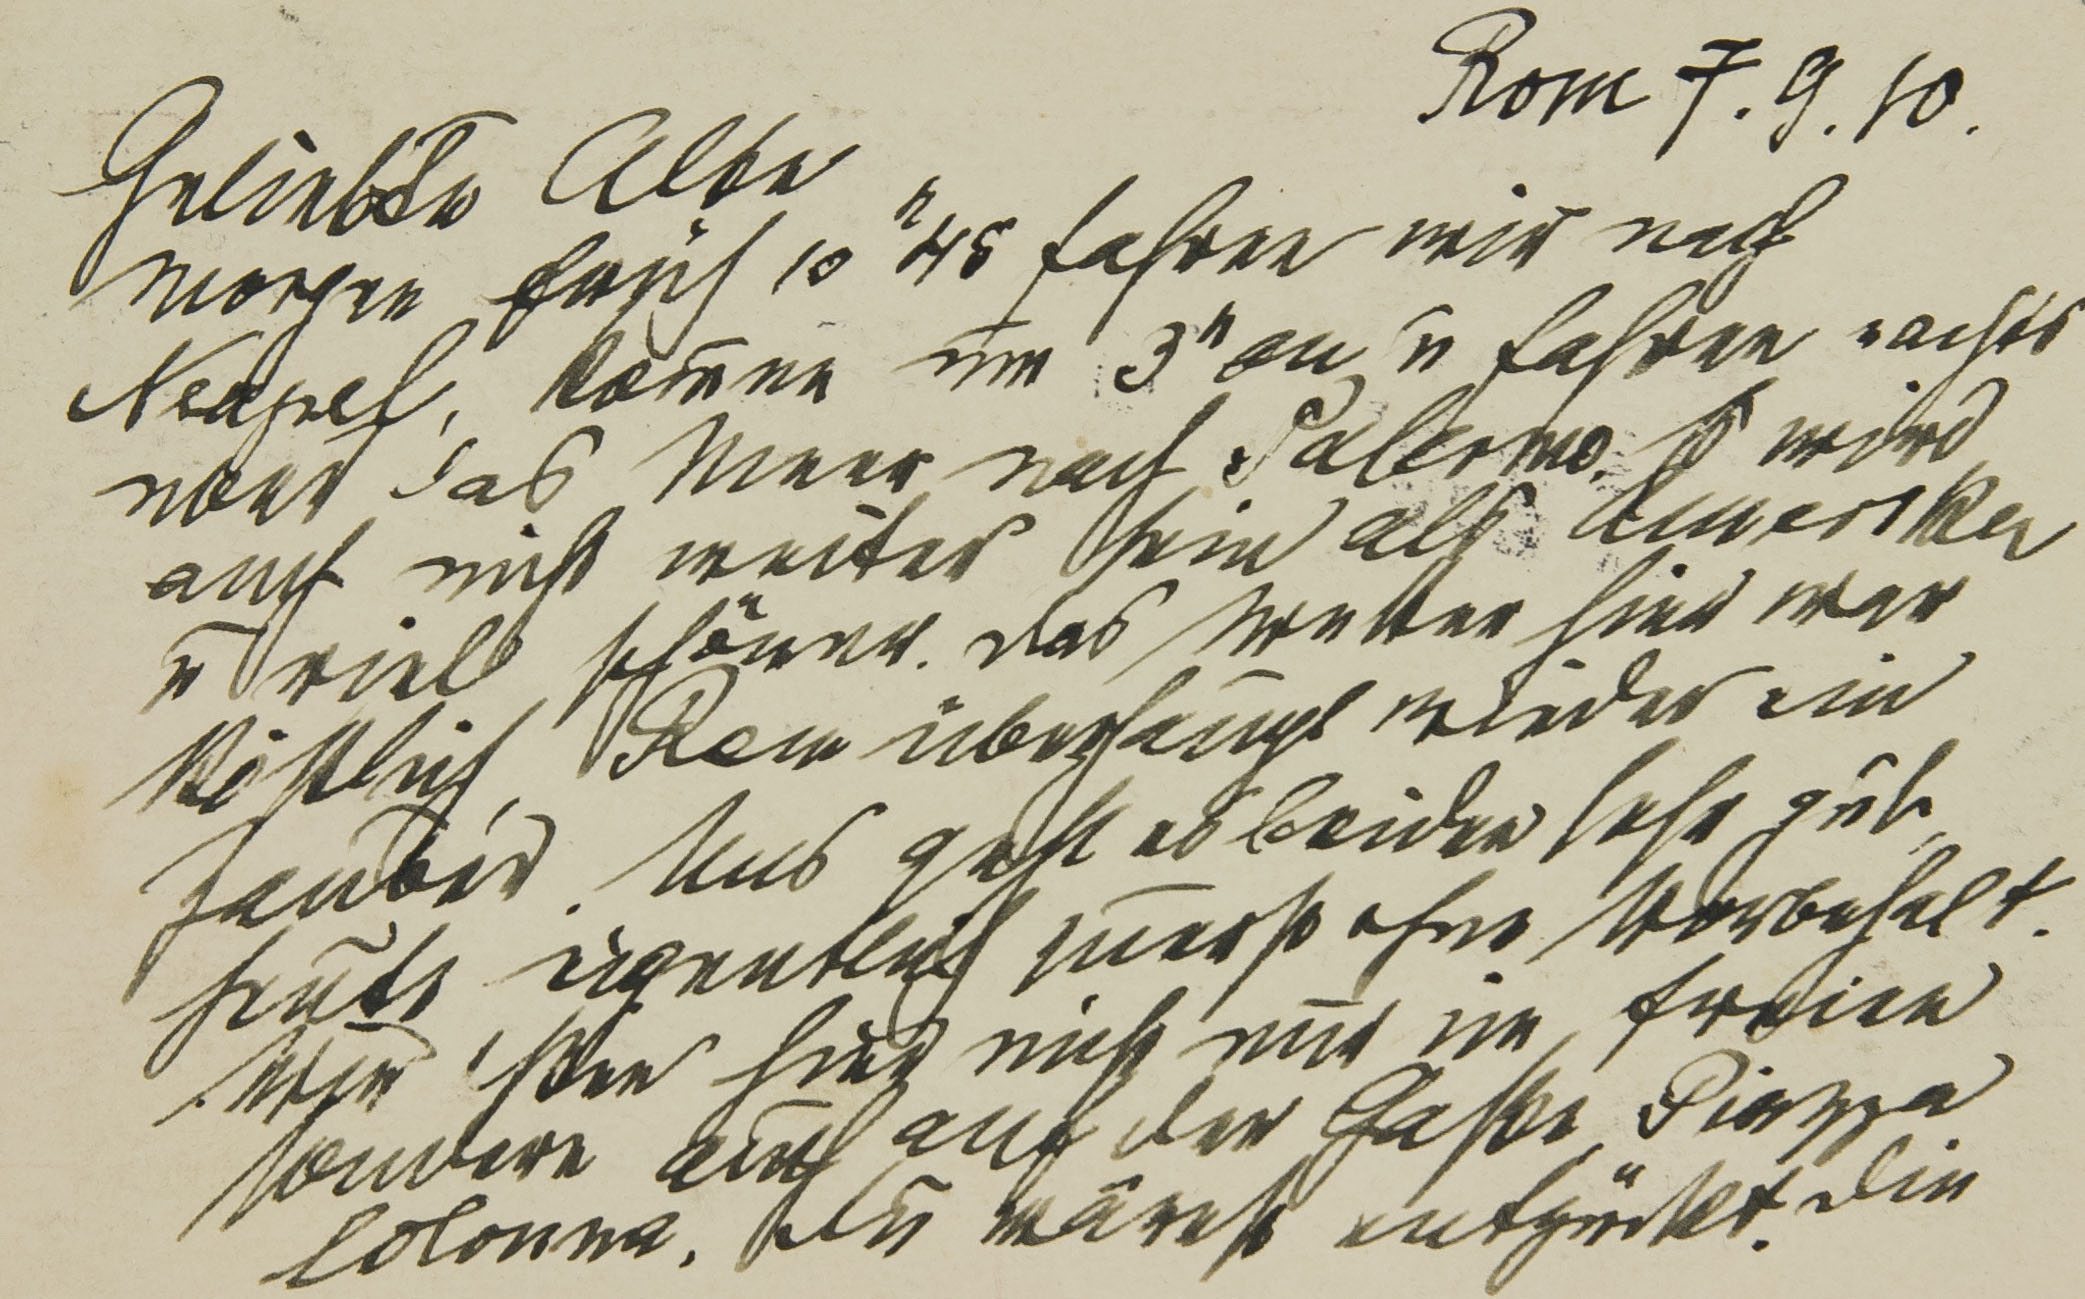 Rom 7. 9. 10.
Geliebte Alte
Morgen früh 10ʰ45 fahren wir nach
Neapel, kom̄en um 3ʰ an u fahren nachts
über das Meer nach Palermo. Es wird
auch nicht weiter sein als Amerika
u viel schöner. Das Wetter hier war
köstlich, Rom überhaupt wieder ein
Zauber. Uns geht es beiden sehr gut,
heute eigentlich zuerst ohne Vorbehalt.
Wir essen hier nicht nur im freien
sondern auch auf der Gasse, Piazza
Colonna. Du wärest entzückt. Die